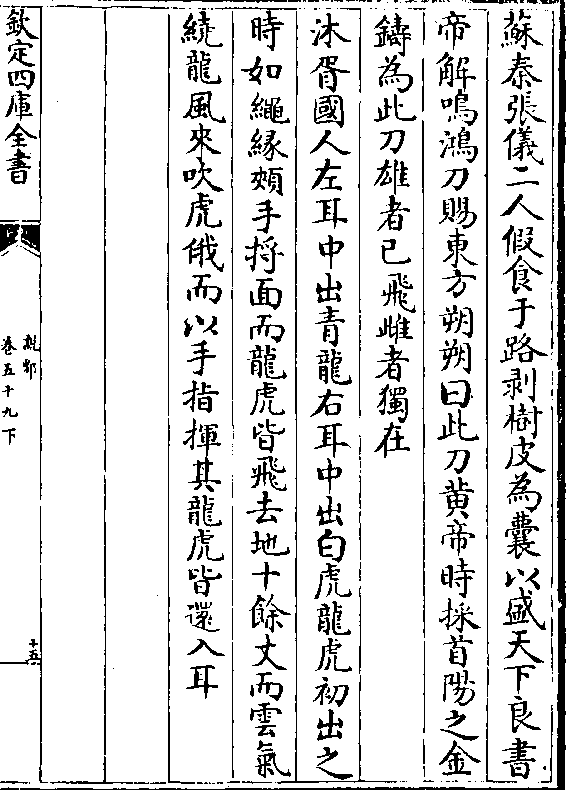 蘇秦張儀二人假食于路剥樹皮為囊以盛天下良書
帝解鳴鴻刀賜東方朔朔曰此刀黄帝時採首陽之金
鑄為此刀雄者已飛雌者獨在
沐胥國人左耳中出青龍右耳中出白虎龍虎初出之
時如繩縁頰手捋面而龍虎皆飛去地十餘丈而雲氣
繞龍風來吹虎俄而以手指揮其龍虎皆還入耳
欽定四庫全書
說郛
卷五十九下
十五